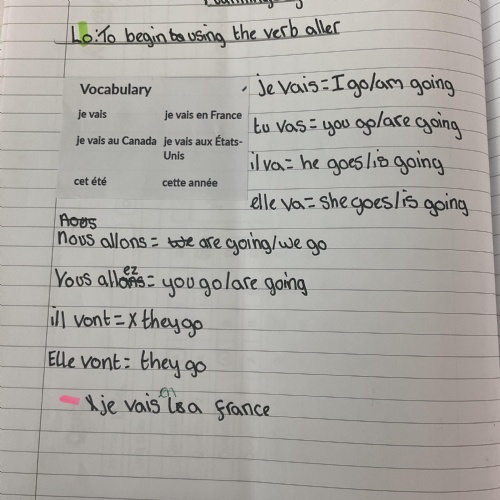 Lo: To begin to using the verb aller
Vocabulary
je vais je vais en France
je vais au Canada je vais aux États-
Unis
cet été cette année
je vais = I go/am going
tu vas = you go/are going
il va = he goes/is going
elle va = she goes/is going
nous allons = we are going/we go
Vous allez = you go/are going
ill vont = X they go
Elle vont = they go
X je vais a france